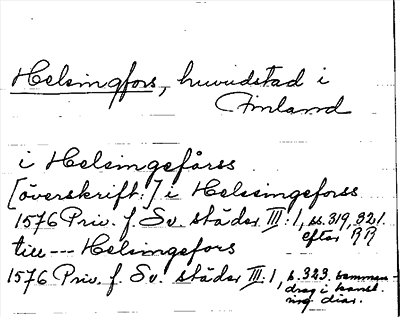 Helsingfors, huvudstad i
Finland
i Helsingefårss
[överskrift:] i Helssingeforss
1576 Priv. f. Sv. städer III:1, ss. 319, 321.
efter RR
till --- Helsingefors
1576 Priv. f. Sv. städer III:1, s. 323. samman-
drag i kansl.
ing diar.